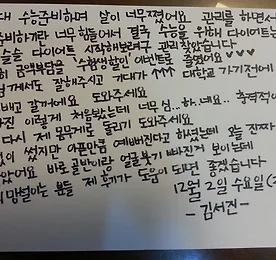 수능준비하며 살이 너무쪘어요 관리를 하면서
준비하기란 너무 힘들어서 결국 수능을 위해 다이어트는
슬슬 다이어트 시작해보려구 관리 찾았습니다
금액부담을 "수험생할인" 이벤트로 줄였어요
께서도 잘해주시고 기대가 ↑↑↑ 대학교 가기전에
빼고 갈꺼에요 도와주세요
사진 이렇게 처음봤는데 너무 심...하..네요.. 충격적이
다시 제 몸무게로 돌리기 도와주세요
썼지만 아픈만큼 예뻐진다고 하셨는데 오늘 진짜
았어요 바로 골반이랑 얼굴붓기 빠진게 보이는데
망설이는 분들 제 후기가 도움이 되면 좋겠습니다
12월 2일 수요일
- 김서진 -